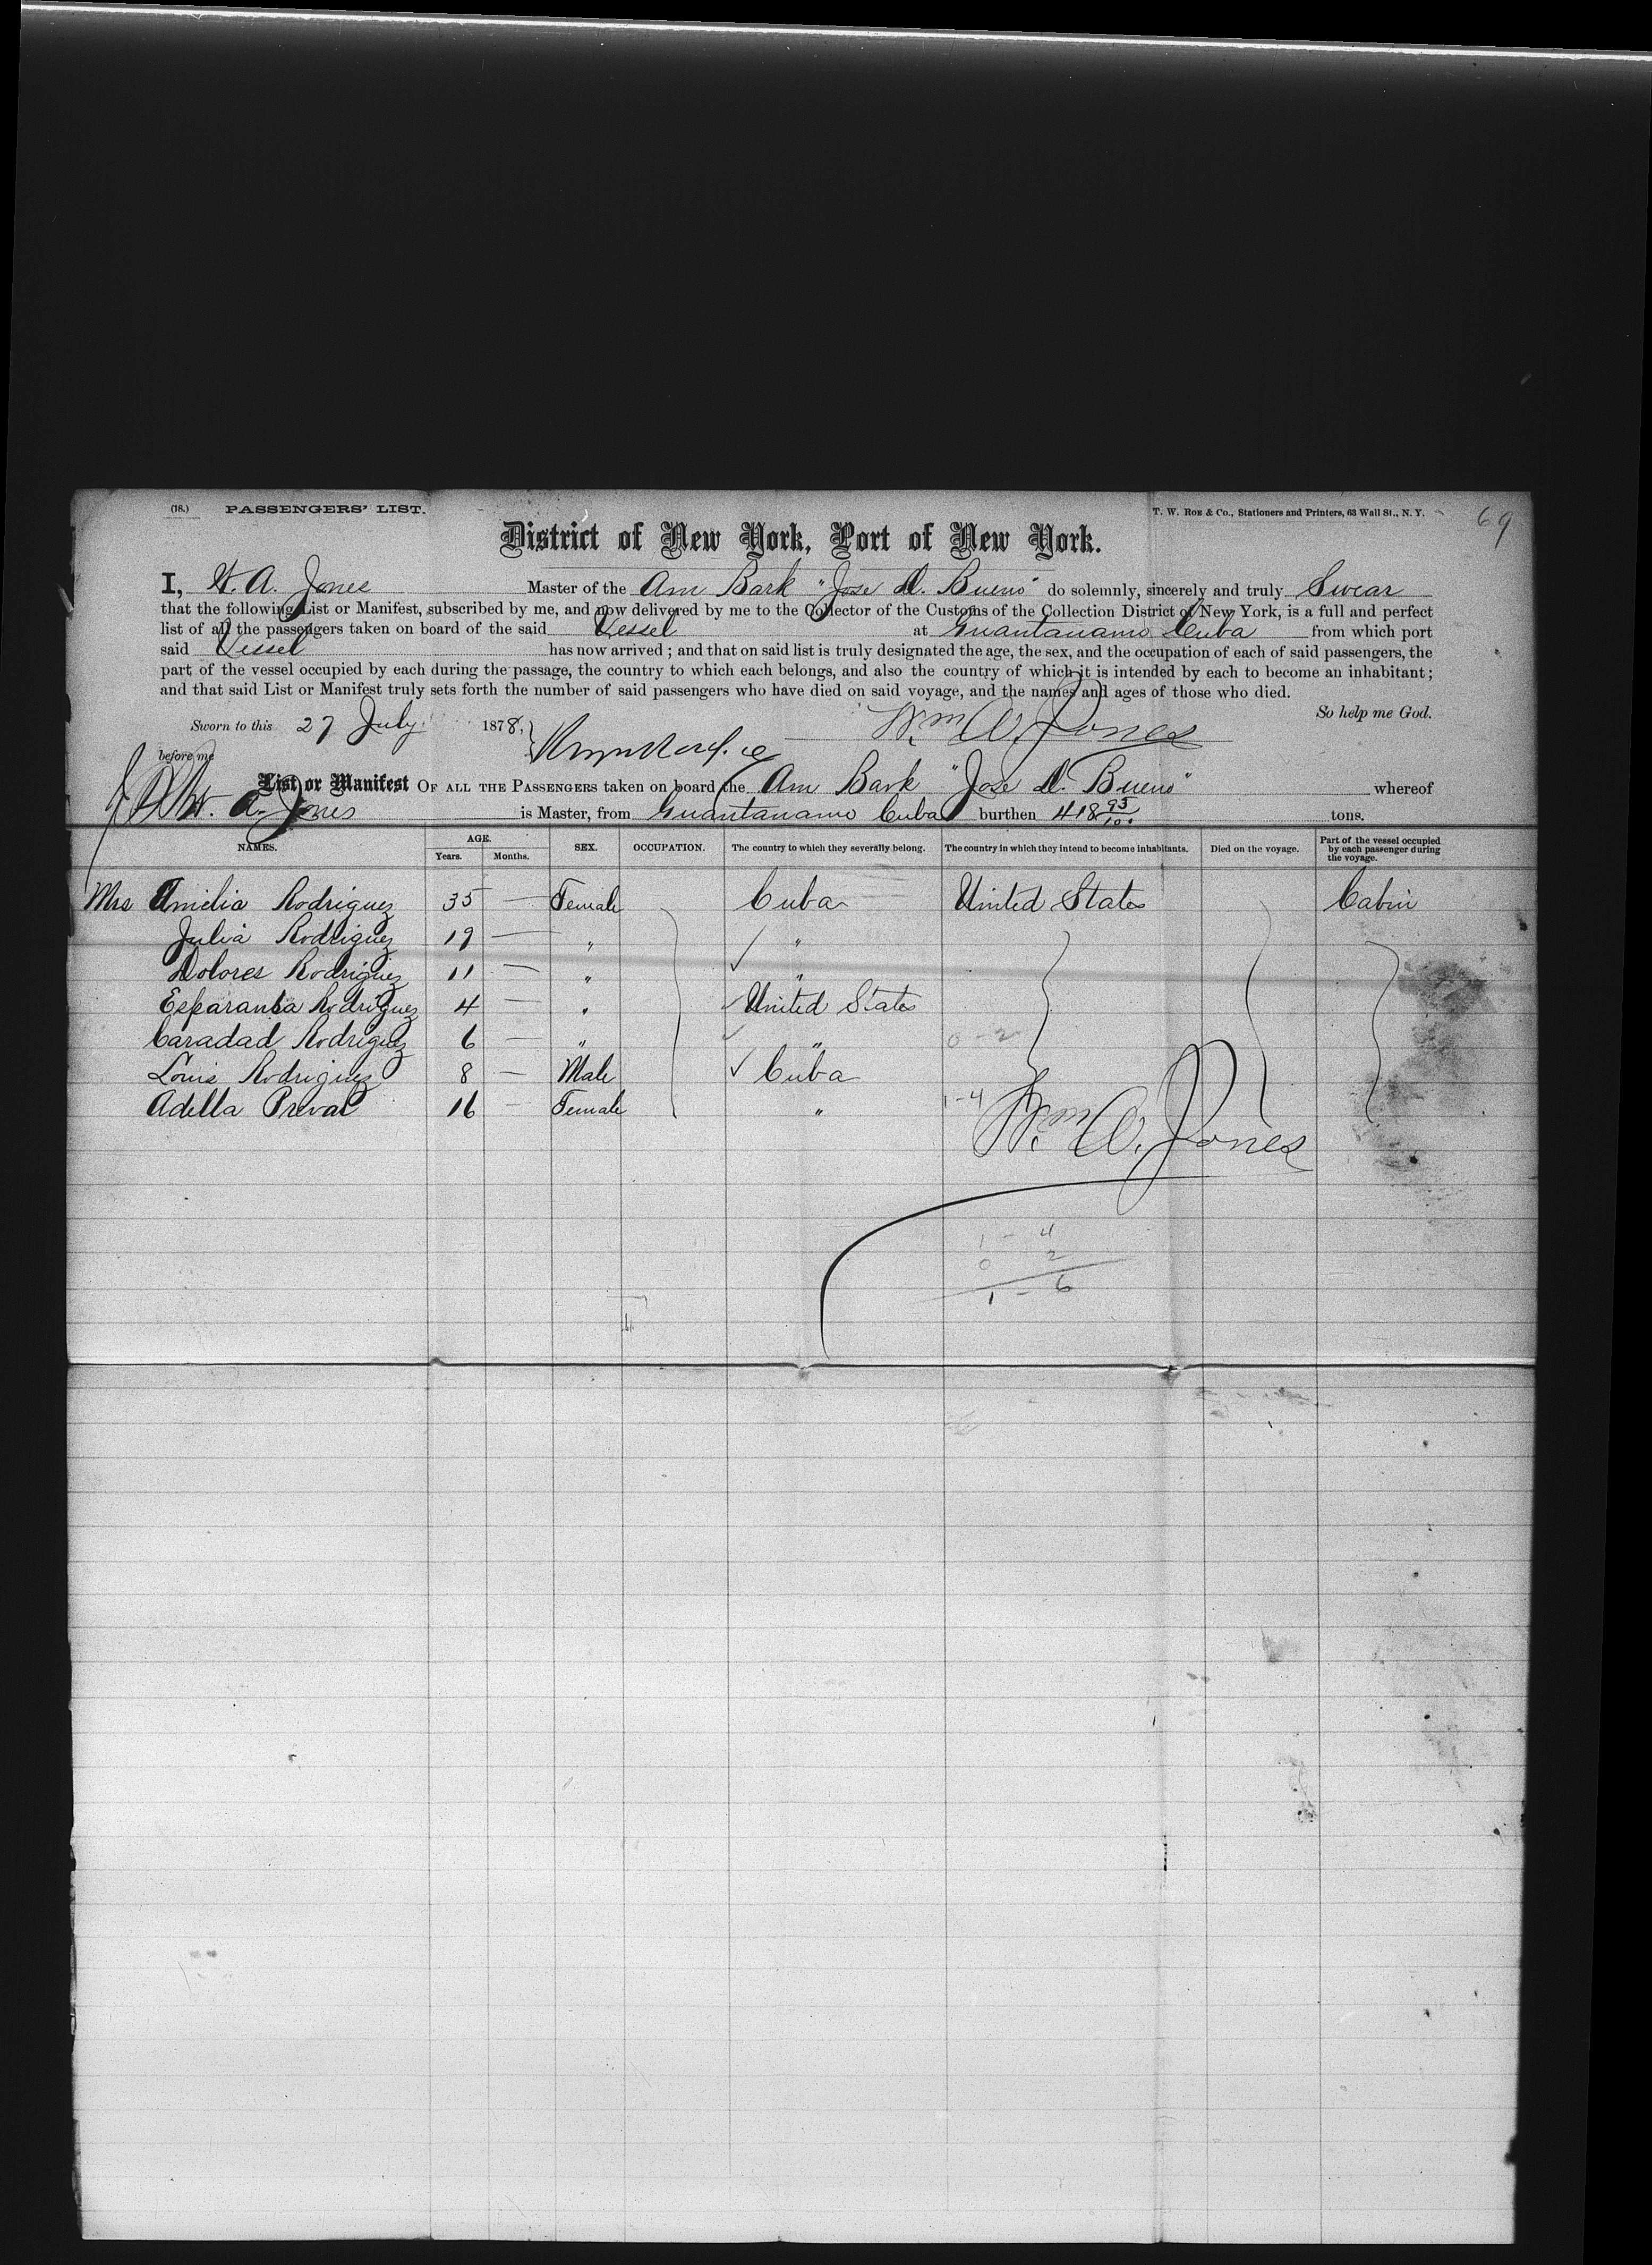 (18.) PASSENGERS' LIST. T. W. Roe & Co., Stationers and Printers, 63 Wall St., N. Y. 69
District of New York, Port of New York.
I, W. A. Jones Master of the Am Bark "Jose D. Bueno" do solemnly, sincerely and truly Swear
that the following List or Manifest, subscribed by me, and now delivered by me to the Collector of the Customs of the Collection District of New York, is a full and perfect
list of all the passengers taken on board of the said Vessel at Guantanamo Cuba from which port
said Vessel has now arrived; and that on said list is truly designated the age, the sex, and the occupation of each of said passengers, the
part of the vessel occupied by each during the passage, the country to which each belongs, and also the country of which it is intended by each to become an inhabitant;
and that said List or Manifest truly sets forth the number of said passengers who have died on said voyage, and the names and ages of those who died.
So help me God.
Sworn to this 27 July 1878, Wm A. Jones
before me
List or Manifest OF ALL THE PASSENGERS taken on board the Am Bark "Jose D. Bueno" whereof
W. A. Jones is Master, from Guantanamo Cuba burthen 418 95/100 tons.
NAMES. AGE. Years. Months. SEX. OCCUPATION. The country to which they severally belong. The country in which they intend to become inhabitants. Died on the voyage. Part of the vessel occupied by each passenger during the voyage.
Mrs Amelia Rodriguez 35 — Female Cuba United States Cabin
Julia Rodriguez 19 — " "
Dolores Rodriguez 11 — " "
Esparansa Rodriguez 4 — " United States
Caradad Rodriguez 6 — " " 0-2
Louis Rodriguez 8 — Male Cuba
Adella Preval 16 — Female " 1-4
Wm A. Jones
1 - 4
0 2
1 - 6